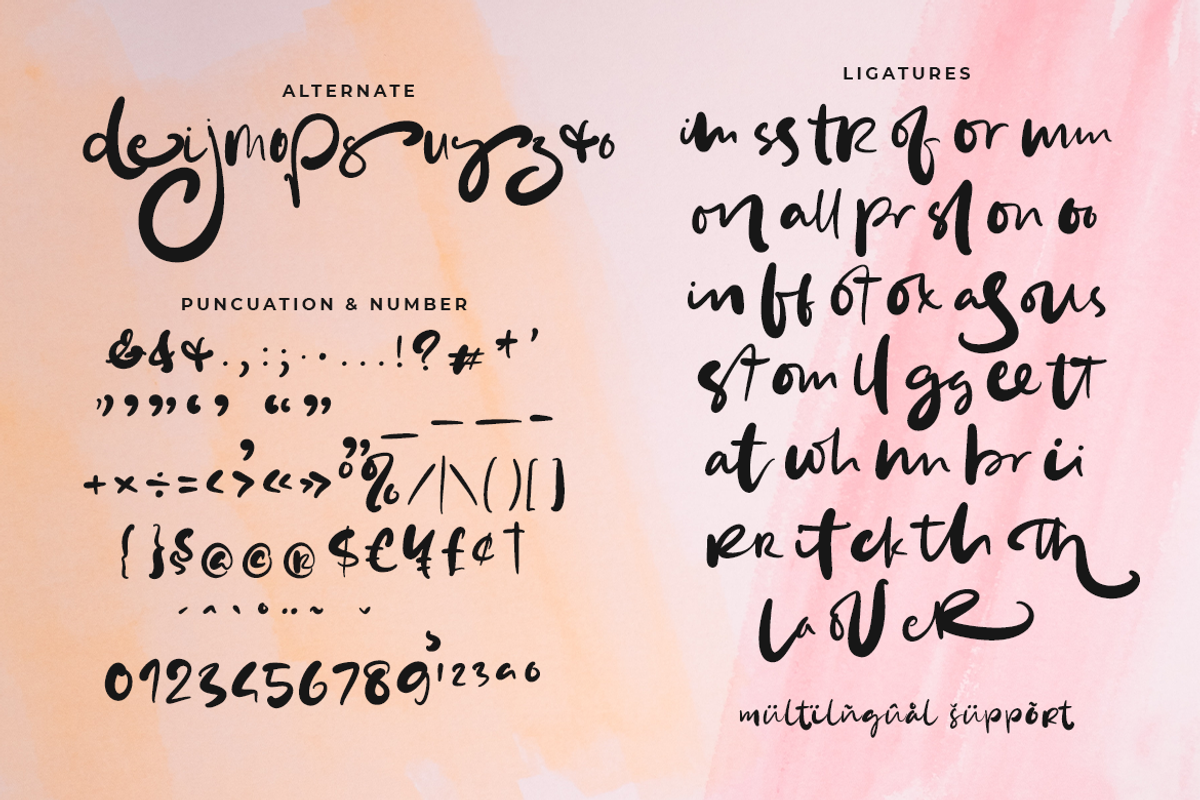 ALTERNATE
d e i j m o p s u y z & o
PUNCUATION & NUMBER
& & & . , : ; · • . . . ! ? # * '
" ’ ’ ” ‘ ’ “ ”
_ – — -
+ × ÷ = < > « » ° % / | \ ( ) [ ]
{ } § @ © ® $ € ¥ £ ¢ †
´ ^ ` ° ¨ ~ ˇ
0 1 2 3 4 5 6 7 8 9 1 2 3 a o
LIGATURES
im ss tR of or mm
on all pr sl on oo
in ff ot ox as ous
st om ll gg ee tt
at wh nn br ii
RR it ck th th
la ov eR
mültïlñgûål šüppõRt